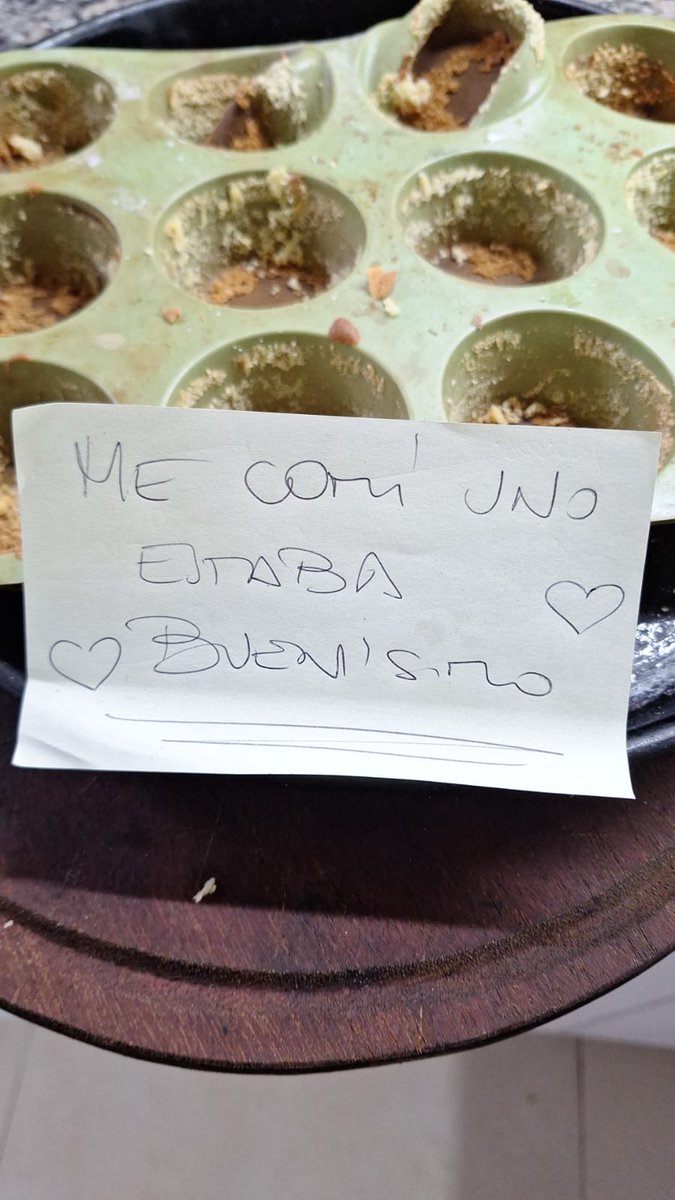 ME COMÍ UNO
ESTABA
BUENÍSIMO